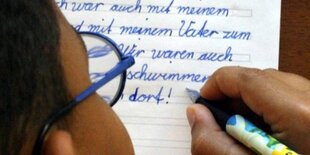 ch war auch mit meinem
d mit meinem Vater zum
Wir waren auch
schwimmen
dort!